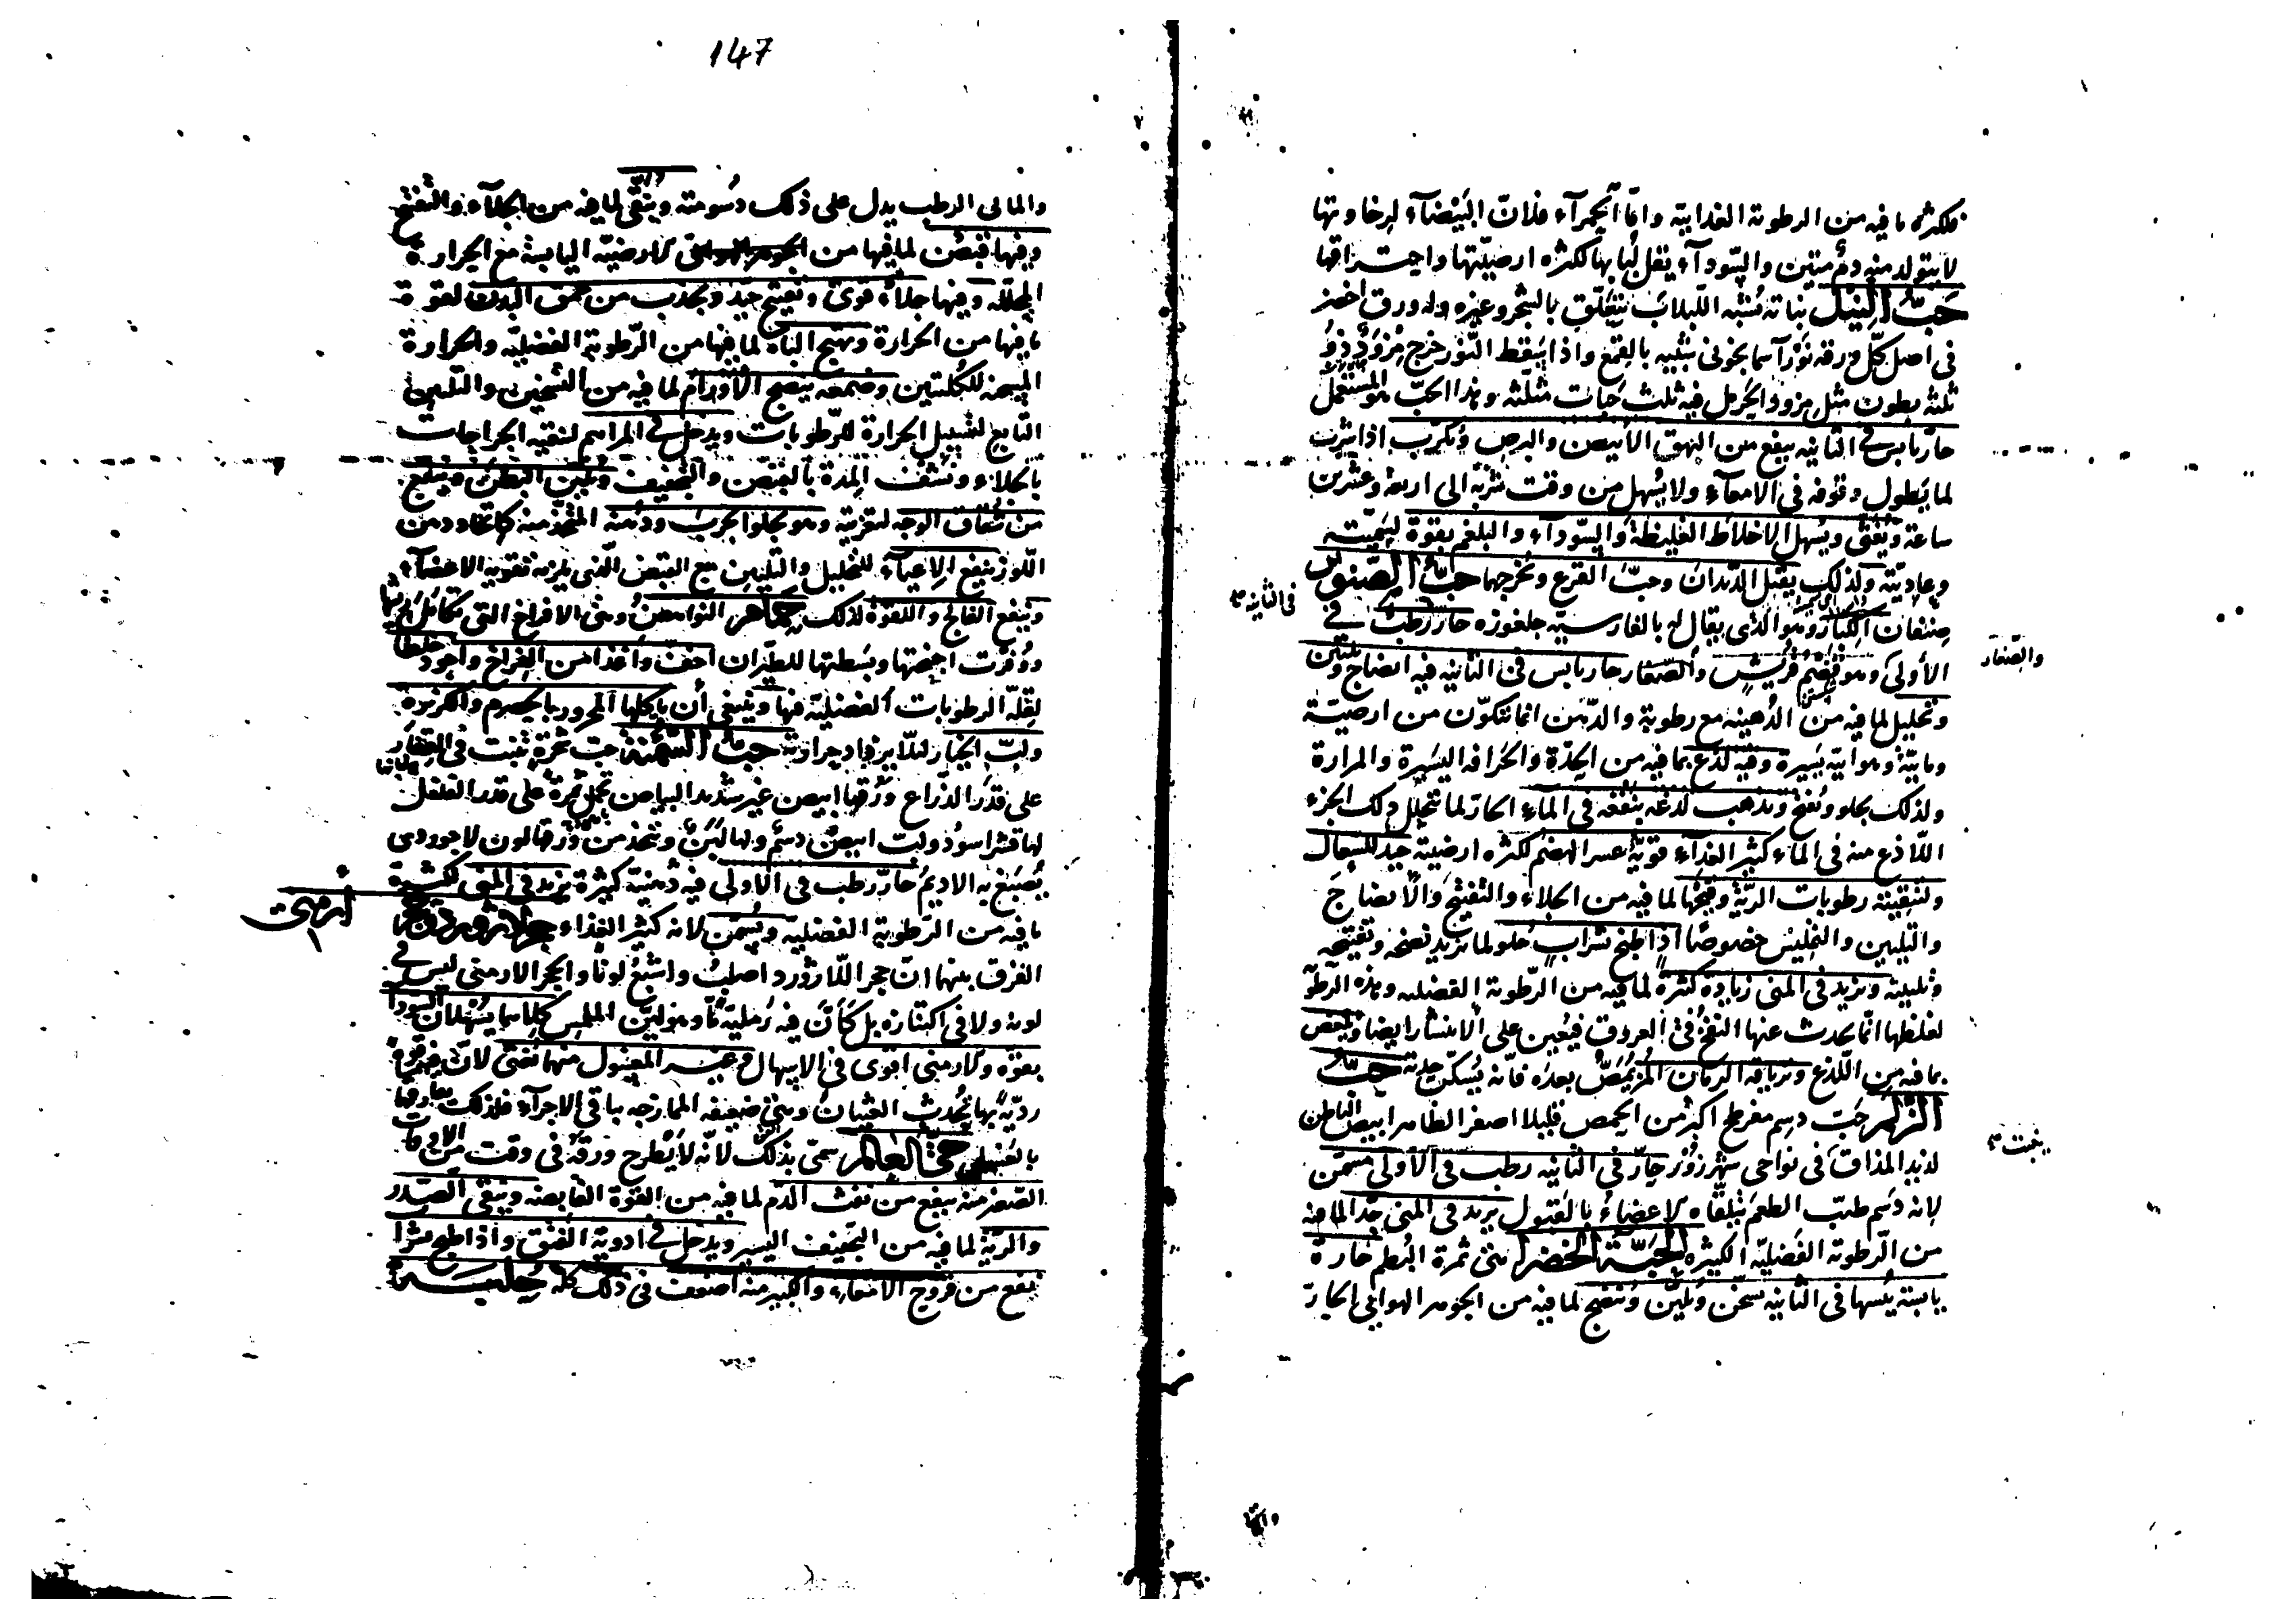 فلكثرة ما فيه من الرطوبة الغذائية واما الحمراء فلانّ البيضاء لرخاوتها
لا يتولد منه دم متين والسوداء يقل لبابها لكثرة ارضيتها واحتراقها
حَبّ النيل نباته يشبه اللبلاب يتعلّق بالشجر وغيره وله ورق اخضر
في اصل كلّ ورقه نَوْر آسمانجوني شبيه بالقمع واذا سقط النّور خرج مزود ذو
ثلثه بطون مثل مزود الحرمل فيه ثلث حبات مثلثه وهذا الحبّ هو المستعمل
حارّ يابس في الثانيه ينفع من البهق الأبيض والبرص ويكرب اذا شرب
لما يطول وقوفه في الامعاء ولا يسهل من وقت شربه الى اربعة وعشرين
ساعة ويغثى ويسهل الاخلاط الغليظة والسّوداء والبلغم بقوة لسميته
وعاديّة ولذلك يقتل الدّيدان وحبّ القرع ويخرجها حبّ الصّنوبر
صنفان الكبار وهو الذي يقال له بالفارسية جلغوزه حارّ رطب في
الأولى وهو قضم قريش والصغار حار يابس في الثانيه فيه انضاج وتليين
وتحليل لما فيه من الدّهنيه مع رطوبة والدّهن انما يتكوّن من ارضيّة
ومائيّة وهوائيّة يسيرة وفيه لذع بما فيه من الحدّة والحرافة اليسيرة والمرارة
ولذلك يجلو وينفخ ويذهب لذعه بنقعه في الماء الحارّ لما يتحلل ذلك الجزء
اللّاذع منه في الماء كثير الغذاء قويّه عسر الهضم لكثرة ارضيته جيد للسعال
ولتنقية رطوبات الريّة وقيحها لما فيه من الجلاء والتفتيح والانضاج
والتليين والتمليس خصوصًا اذا طبخ بشراب حلو لما يزيد نضجه وتفتيحه
وتليينه ويزيد في المني زيادة كثيرة لما فيه من الرّطوبة الفضليه وهذه الرّطوبة
لغلظها انّما يحدث عنها النفخ في العروق فيعين على الانتشار ايضا ويمغص
بما فيه من اللّذع وترياقه الرمان المزّ يُمَصّ بعده فانه يسكّن حدّته حَبّ
الزلم حبّ دسم مفرطح اكبر من الحمص قليلا اصفر الظاهر ابيض الباطن
لذيذ المذاق في نواحي شهرزور حارّ في الثانيه رطب في الأولى مسمّن
لانه دسم طيّب الطعم يتلقاه الاعضاء بالقبول يزيد في المني جدّا لما فيه
من الرّطوبة الفضليّه الكثيره الحبّة الخضرا هي ثمرة البطم حارّة
يابسة يبسها في الثانيه يسخّن ويليّن وينضج لما فيه من الجوهر الهوائي الحارّ
في الثانيه
والصغار
147
والمائي الرطب يدل على ذلك دسومته وينقّي لما فيه من الجلاء والتفتيح
وفيها قبض لما فيها من الارضيّه اليابسة مع الحرارة
المحلّله وفيها جلاء قوي وتفتيح جيّد ويجذب من عمق البدن لقوة
ما فيها من الحرارة ويهيج الباه لما فيها من الرّطوبة الفضليّه والحرارة
المسخنة للكليتين وصمغه ينضج الأورام لما فيه من التسخين والتليين
التابع لتسييل الحرارة للرّطوبات ويدخل في المراهم لتنقية الجراحات
بالجلاء ونشف المدة بالقبض والتجفيف ويليّن البطن وينفع
من شقاق الوجه لتغريته وهو يجلو الجرب ودهنه المتّخذ منه كاتخاذ دهن
اللّوز ينفع الاعياء للتحليل والتليين مع القبض الّذي يلزمه تقوية الاعضاء
وينفع الفالج واللقوة لذلك حمام النواهض وهي الافراخ التي تكامل ريشها
ووفرت اجنحتها وبسطتها للطيران اخفّ واغذا من الفراخ واجود خلطا
لقلّة الرطوبات الفضليّة فيها وينبغي أن ياكلها المحرور بالحصرم والكزبرة
ولبّ الخيار لئلا يزداد حرارته حبّ السّمنة حبّ شجرة تنبت في القفار
على قدر الذّراع ورقها ابيض غير شديد البياض تحمل ثمرة على قدر الفلفل
لها قشر اسود ولبّ ابيض دسم ولها لبن ويتخذ من ورقها لون لاجوردي
يُصبغ به الاديم حارّ رطب في الاولى فيه دهنيّة كثيرة يزيد في المني لكثرة
ما فيه من الرّطوبة الفضليّه ويسمّن لانه كثير الغذاء حجر لازورد وحجر
ارمني
الفرق بينهما انّ حجر اللّازورد اصلب واشبع لونًا والحجر الارمني ليس في
لونه ولا في اكتنازه بل كأنّ فيه رمليّة مّا وهو ليّن الملمس كلاهما يسهلان السودا
بقوّه والارمني اقوى في الاسهال وغير المغسول منهما يغثي لانّ فيه قوة
رديّة بها يحدث الغثيان وهي ضعيفه الممازجه بباقي الاجزاء فلذلك يفارقها
بالغسل حيّ العالم سمّي بذلك لانّه لا يطرح ورقه في وقت من الاوقات
الصّغير منه ينفع من نفث الدّم لما فيه من القوّة القابضه وينقي الصّدر
والريّة لما فيه من التجفيف اليسير ويدخل في ادوية الفتق واذا طبخ بشراب
نفع من قروح الامعاء والكبير منه اضعف في ذلك كله حلبة